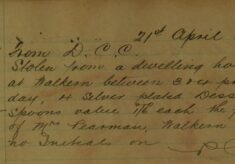 21st April
From D.C.C.
Stolen from a dwelling ho
at Walkern between 3 &
day, 4 Silver plated Dess
Spoons value 1/6 each the p
of Wm Pearman, Walkern
no Initials on